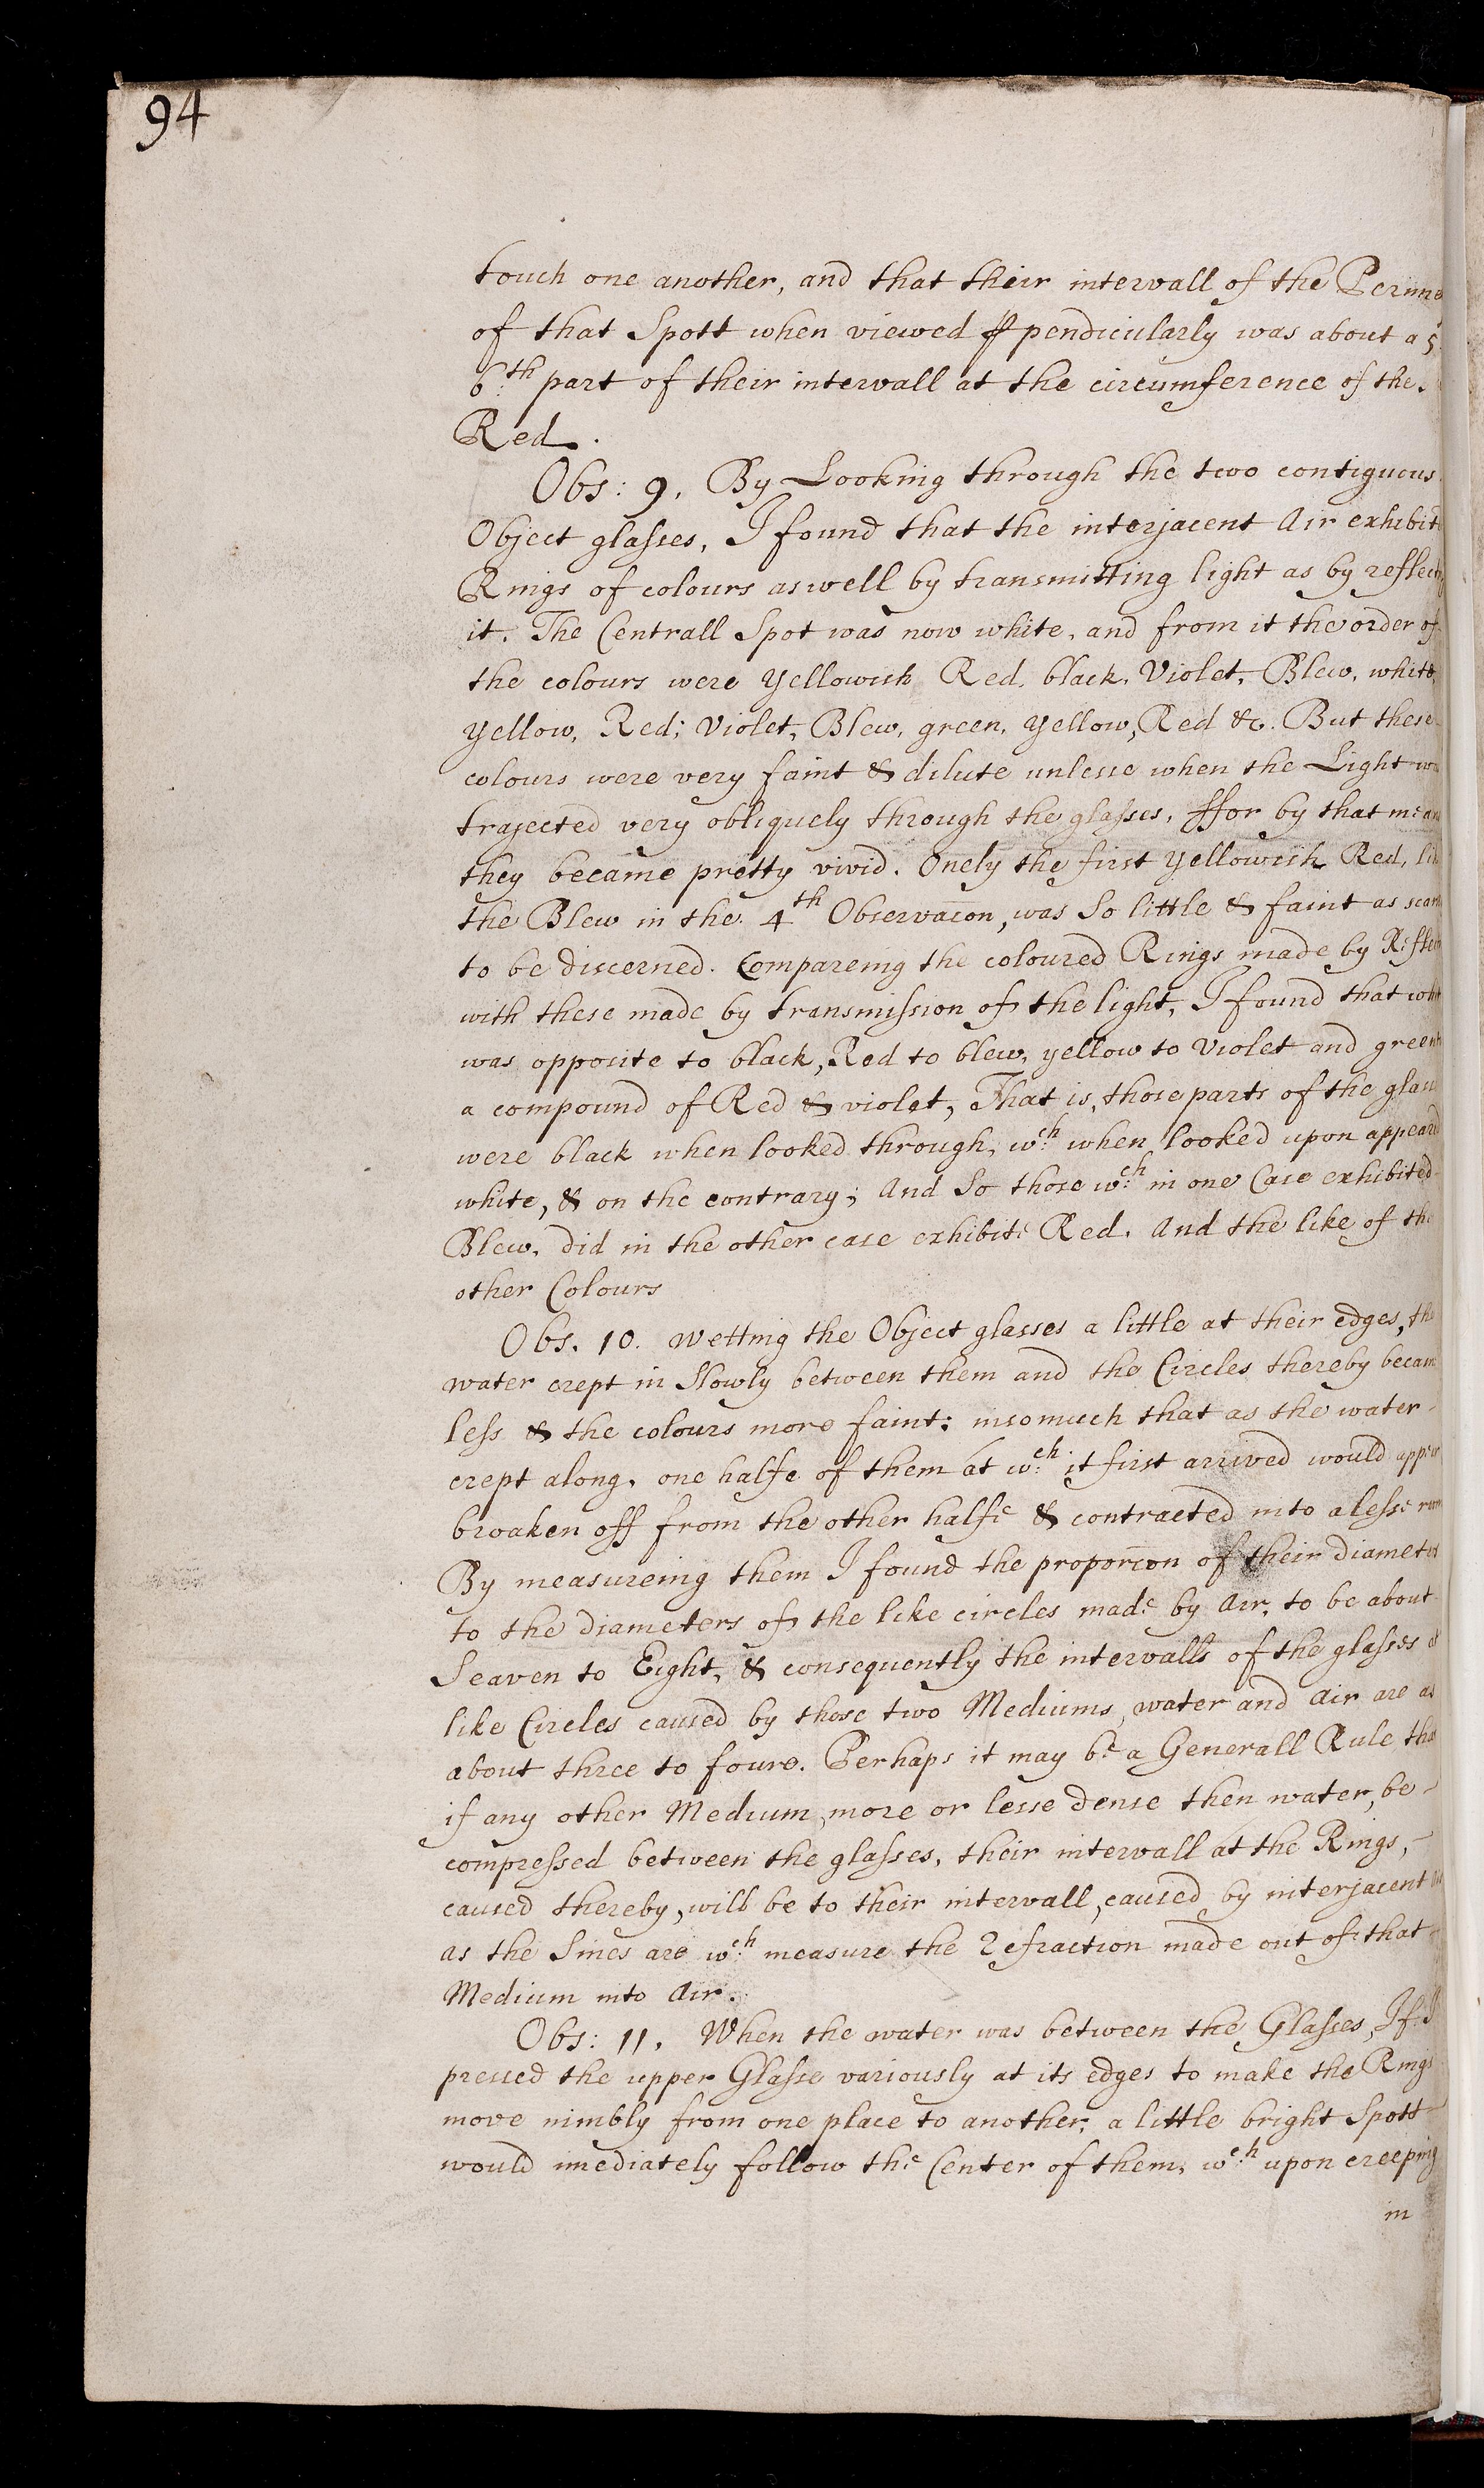 94
touch one another, and that their intervall of the Perime
of that Spott when viewed ꝑpendicularly was about a 5
6.th part of their intervall at the circumference of the
Red.
Obs: 9. By Looking through the two contiguous
Object glasses, I found that the interjacent Air exhibit
Rings of colours aswell by transmitting light as by reflect
it. The Centrall Spot was now white, and from it the order of
the colours were Yellowish Red, black, Violet, Blew, white,
Yellow, Red; Violet, Blew, green, Yellow, Red &c. But these
colours were very faint & dilute unlesse when the Light w
trajected very obliquely through the glasses, ffor by that mean
they became pretty vivid. Onely the first Yellowish Red, lik
the Blew in the 4th Observac̄on, was So little & faint as scar
to be discerned. Compareing the coloured Rings made by Reflec
with these made by transmission of the light, I found that whit
was opposite to black, Red to blew, yellow to Violet and green
a compound of Red & violet, That is, those parts of the glas
were black when looked through, w.ch when looked upon appeared
white, & on the contrary; And So those w.ch in one Case exhibited
Blew, did in the other case exhibite Red. And the like of the
other Colours
Obs. 10. Wetting the Object glasses a little at their edges, the
water crept in Slowly between them and the Circles thereby becam
less & the colours more faint: insomuch that as the water
crept along, one halfe of them at w.ch it first arrived would appear
broaken off from the other halfe & contracted into a lesse room
By measureing them I found the proporc̄on of their diameter
to the diameters of the like circles made by Air, to be about
Seaven to Eight, & consequently the intervalls of the glasses
like Circles caused by those two Mediums, water and Air are as
about three to foure. Perhaps it may be a Generall Rule that
if any other Medium, more or lesse dense then water, be
compressed between the glasses, their intervall at the Rings,
caused thereby, will be to their intervall, caused by interjacent
as the Sines are w.ch measure the Refraction made out of that
Medium into Air.
Obs: 11. When the water was between the Glasses, If I
pressed the upper Glasse variously at its edges to make the Rings
move nimbly from one place to another, a little bright Spott
would im̄ediately follow the Center of them, w.ch upon creeping
in